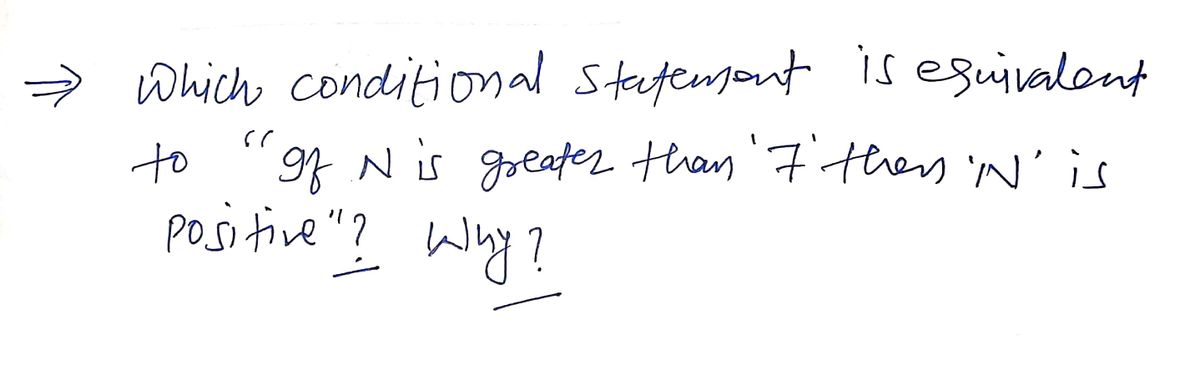 ⇒ Which conditional statement is equivalent
to "If N is greater than '7' then 'N' is
positive"? Why?